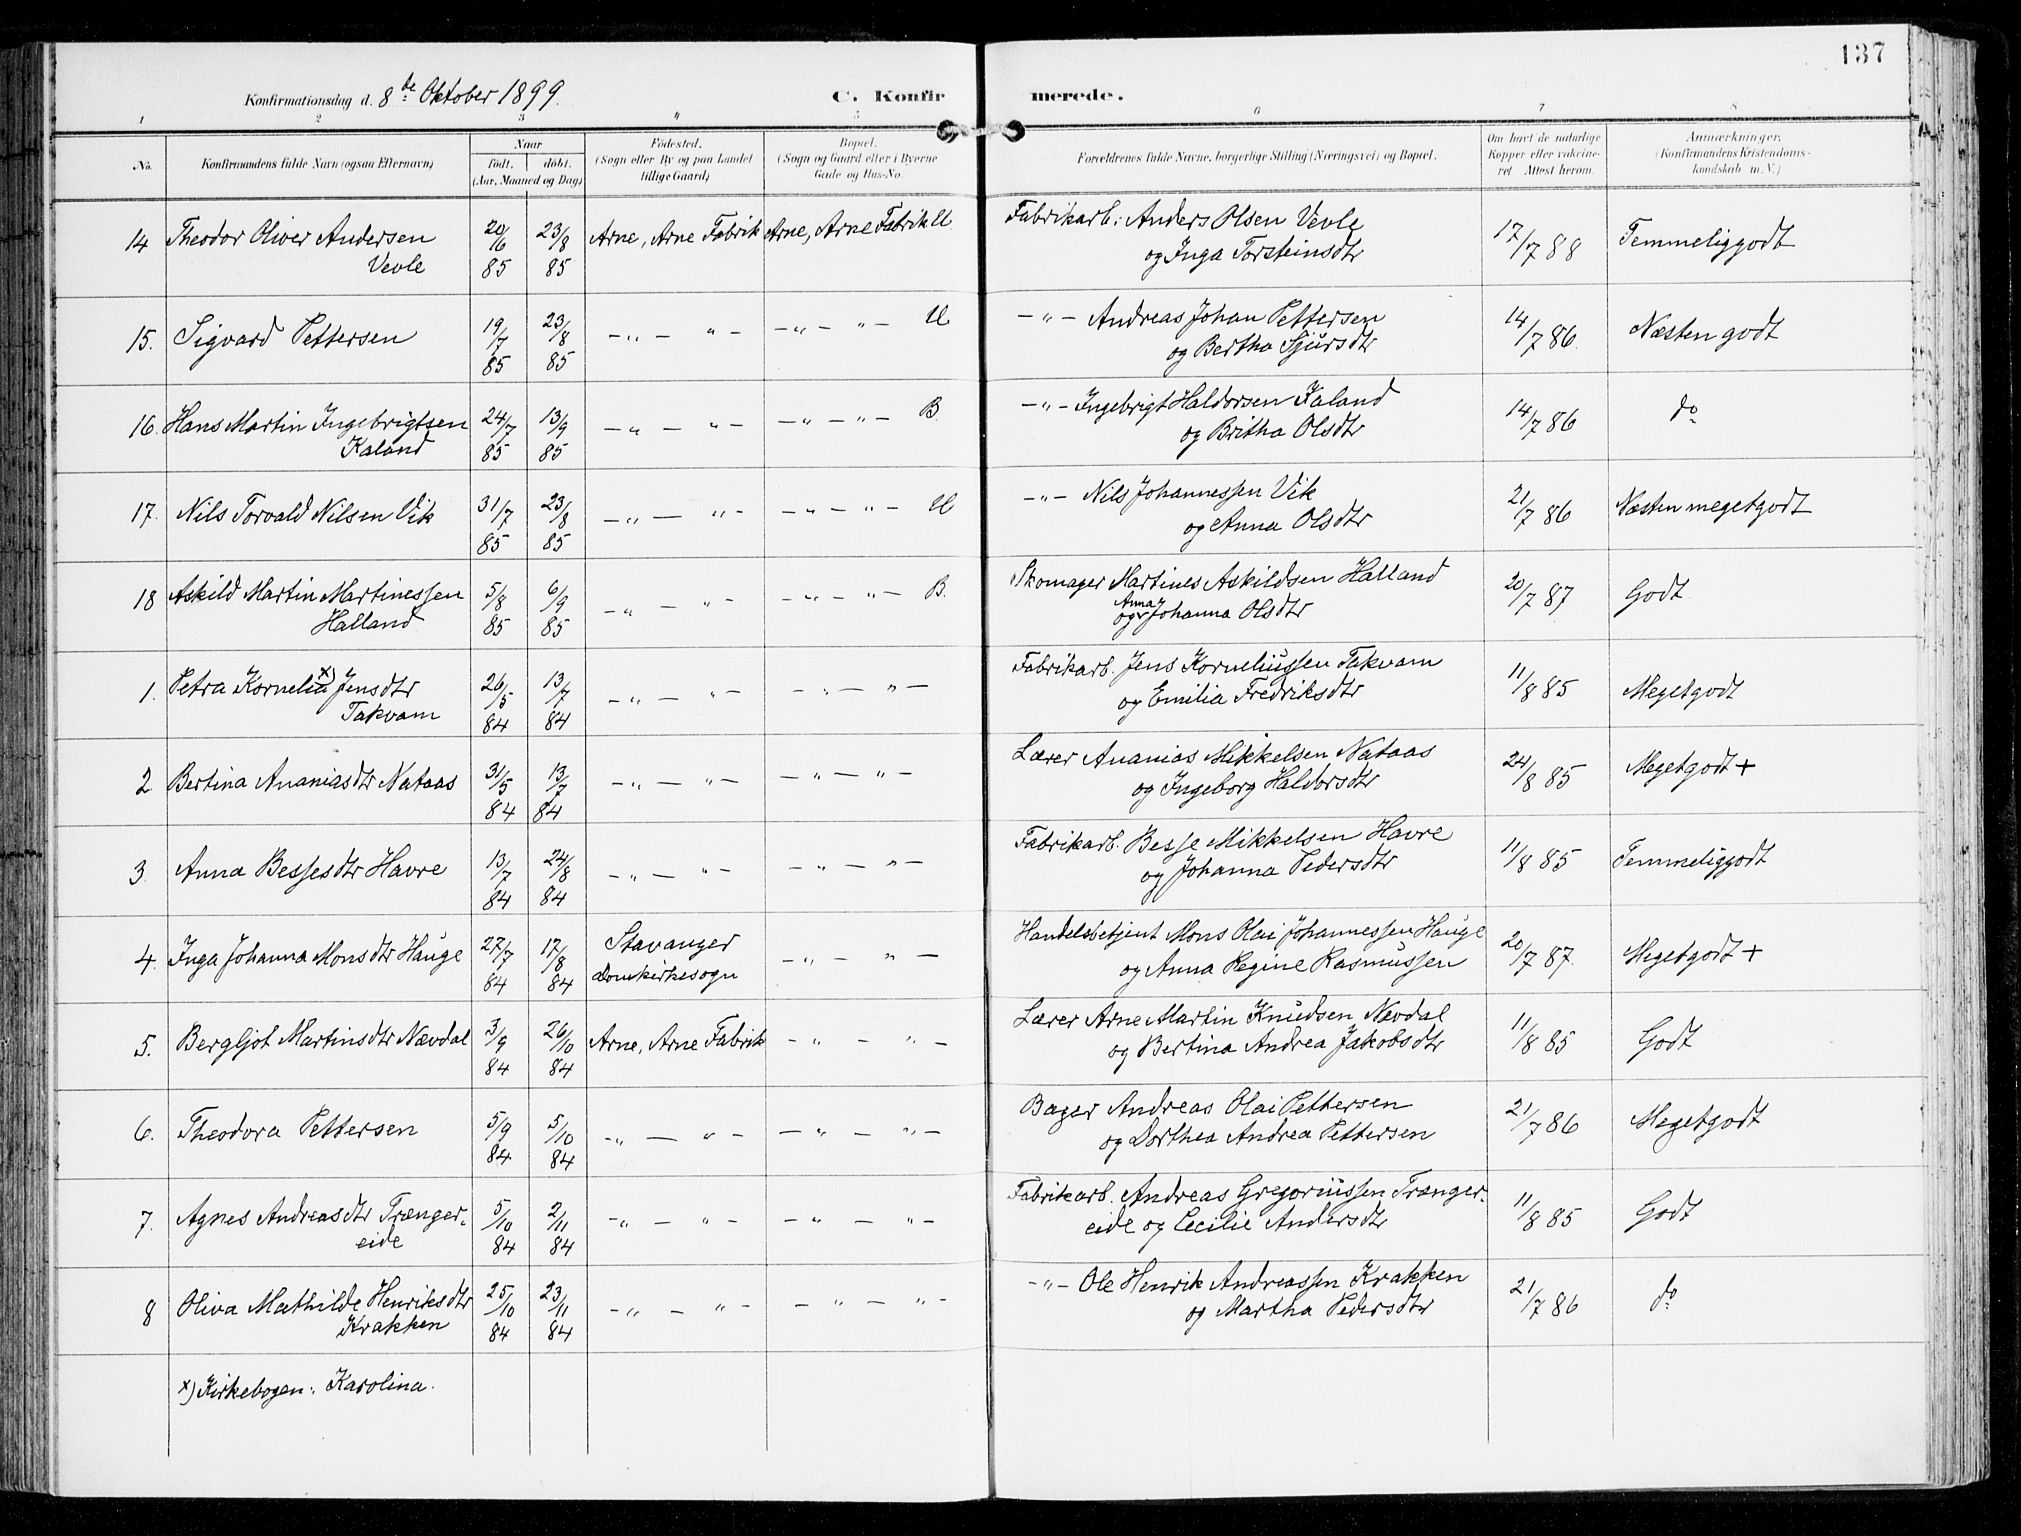 137
Konfirmationsdag d. 8de Oktober 1899.
C. Konfirmerede.
1 2 3 4 5 6 7 8
No.
Konfirmandens fulde Navn (ogsaa Efternavn)
Naar
født. døbt.
(Aar, Maaned og Dag)
Fødested.
(Sogn eller By og paa Landet
tillige Gaard)
Bopæl.
(Sogn og Gaard eller i Byerne
Gade og Hus-No.
Forældrenes fulde Navne, borgerlige Stilling (Næringsvei) og Bopæl.
Om havt de naturlige
Kopper eller vakcine-
ret Attest herom.
Anmærkninger.
(Konfirmandens Kristendoms-
kundskab m. V.)
14 Theodor Oliver Andersen Vevle 20/6 85 23/8 85 Arne, Arne Fabrik Arne, Arne Fabrik U
Fabrikarb: Anders Olsen Vevle
og Inga Torsteinsdtr 17/7 88 Temmeliggodt
15. Sigvard Pettersen 19/7 85 23/8 85 -"- "- -"- "- U
-"- Andreas Johan Pettersen
og Bertha Sjursdtr 14/7 86. Næsten godt
16. Hans Martin Ingebrigtsen Kaland 24/7 85 13/9 85 -"- "- -"- "- B.
-"- Ingebrigt Haldorsen Kaland
og Britha Olsdtr 14/7 86 do
17. Nils Torvald Nilsen Vik 31/7 85 23/8 85 -"- "- -"- "- U
-"- Nils Johannessen Vik
og Anna Olsdtr 21/7 86 Næsten megetgodt
18 Askild Martin Martinessen Halland 5/8 85 6/9 85 -"- "- -"- "- B.
Skomager Martines Askildsen Halland
og Anna Johanna Olsdtr 20/7 87 Godt
1. Petra Kornelia x) Jensdtr Takvam 26/5 84 13/7 84 -"- "- -"- "-
Fabrikarb. Jens Korneliussen Takvam
og Emilia Fredriksdtr 11/8 85 Megetgodt
2 Bertina Ananiasdtr Nataas 31/5 84 13/7 84 -"- "- -"- "-
Lærer Ananias Mikkelsen Nataas
og Ingeborg Haldorsdtr 24/8 85 Megetgodt +
3. Anna Bessesdtr Havre 13/7 84 24/8 84 -"- "- -"- "-
Fabrikarb. Besse Mikkelsen Havre
og Johanna Pedersdtr 11/8 85 Temmeliggodt
4. Inga Johanna Monsdtr Hauge 27/7 84 17/8 84 Stavanger Domkirkesogn -"- "-
Handelsbetjent Mons Olai Johannessen Hauge
og Anna Regine Rasmussen 20/7 87. Megetgodt +
5. Bergljot Martinsdtr Nævdal 3/9 84 26/10 84 Arne, Arne Fabrik -"- "-
Lærer Arne Martin Knudsen Nevdal
og Bertina Andrea Jakobsdtr 11/8 85 Godt
6. Theodora Pettersen 5/9 84 5/10 84 -"- "- -"- "-
Bager Andreas Olai Pettersen
og Dorthea Andrea Pettersen 21/7 86 Megetgodt
7. Agnes Andreasdtr Trænger-
eide 5/10 84 2/11 84 -"- "- -"- "-
Fabrikarb. Andreas Gregoriussen Trænger-
eide og Cecilie Andersdtr 11/8 85 Godt
8 Oliva Mathilde Henriksdtr Krakken 25/10 84 23/11 84 -"- "- -"- "-
-"- Ole Henrik Andreassen Krakken
og Martha Pedersdtr 21/7 86 do
x) Kirkebogen: Karolina.